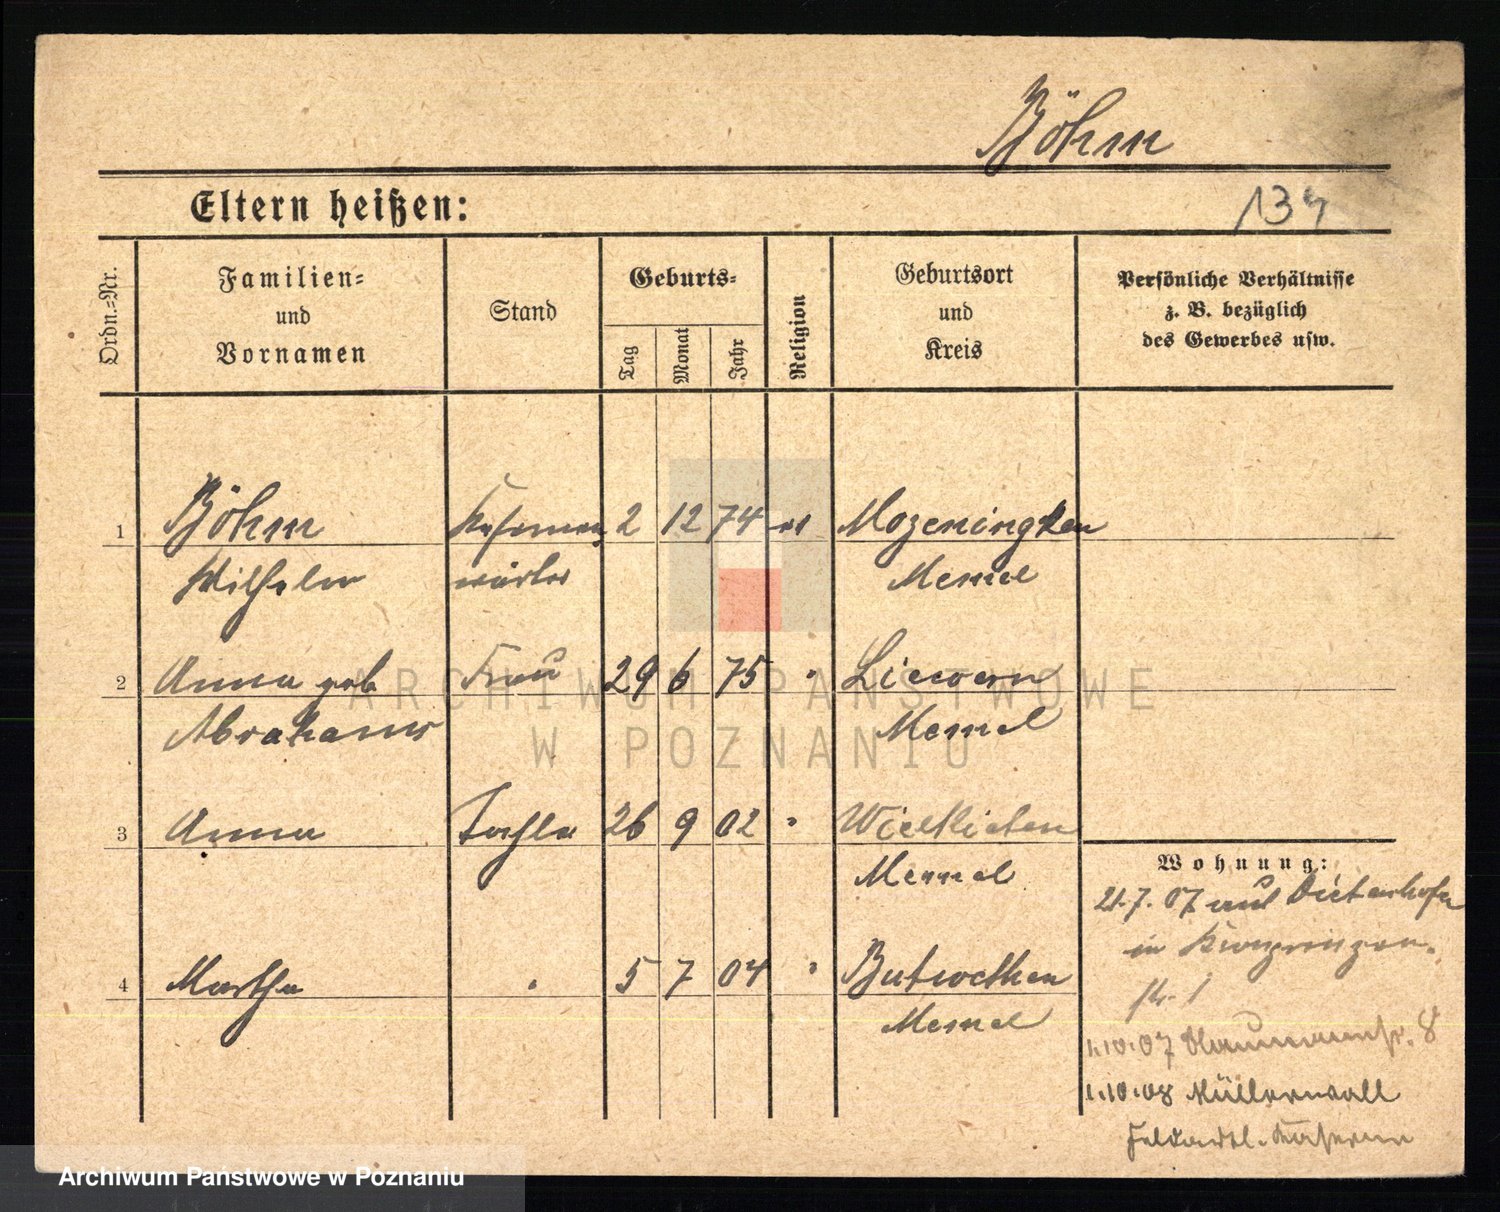 Böhm
Eltern heißen:
134
Ordn.=Nr.
Familien=
und
Vornamen
Stand
Geburts=
Tag
Monat
Jahr
Religion
Geburtsort
und
Kreis
Persönliche Verhältnisse
z. B. bezüglich
des Gewerbes usw.
1 Böhm Kasernen 2 12 74 ev Mozeningken
Wilhelm wärter Memel
2 Anna geb Frau 29 6 75 " Liewern
Abrahams Memel
3 Anna Tochter 26 9 02 "
Memel
4 Martha " 5 7 04 "
Memel
Wohnung:
21.7.07 aus Dietenhofen
in
1
1.10.07 Naumannstr. 8
1.10.08 Müllerwall
Feldartl. Kaserne
ARCHIWUM PAŃSTWOWE
W POZNANIU
Archiwum Państwowe w Poznaniu